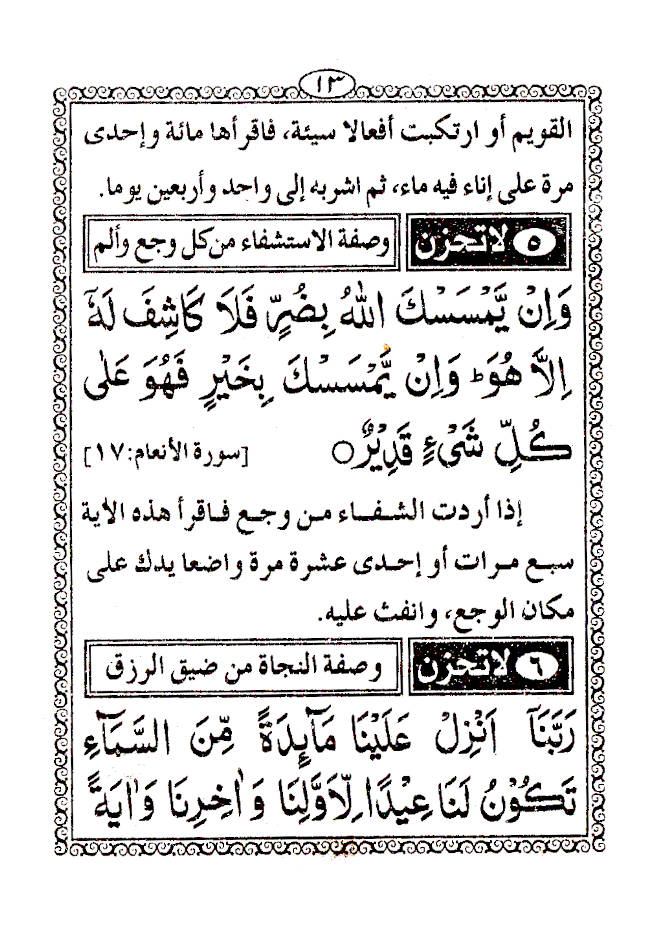 ١٣
القويم أو ارتكبت أفعالا سيئة، فاقرأها مائة وإحدى
مرة على إناء فيه ماء، ثم اشربه إلى واحد وأربعين يوما.
٥ لا تحزن وصفة الاستشفاء من كل وجع وألم
وَاِنْ يَّمْسَسْكَ اللهُ بِضُرٍّ فَلَا كَاشِفَ لَهٗ
اِلَّا هُوَ ؕ وَاِنْ يَّمْسَسْكَ بِخَيْرٍ فَهُوَ عَلٰى
كُلِّ شَيْءٍ قَدِيْرٌ ○ [سورة الأنعام:١٧]
إذا أردت الشفاء من وجع فاقرأ هذه الآية
سبع مرات أو إحدى عشرة مرة واضعا يدك على
مكان الوجع، وانفث عليه.
٦ لا تحزن وصفة النجاة من ضيق الرزق
رَبَّنَاۤ اَنْزِلْ عَلَيْنَا مَآىِٕدَةً مِّنَ السَّمَآءِ
تَكُوْنُ لَنَا عِيْدًا لِّاَوَّلِنَا وَاٰخِرِنَا وَاٰيَةً